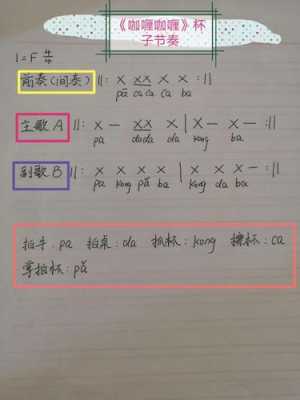 《咖喱咖喱》杯
子节奏
1=F 4/4
前奏(间奏) ‖: X XX X X :‖
pā ca ca ca ba
主歌 A ‖: X — XX X | X — X — :‖
pa dada da kong ba
副歌 B ‖: X X X X | X X X — :‖
pa kong pā ba kong da ba
拍手: pa 拍桌: da 抓杯: kong 擦杯: ca
掌拍杯: pā